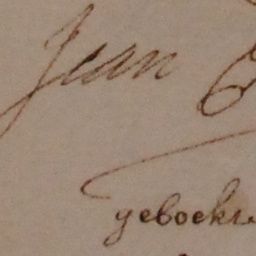 Jean
geboekt